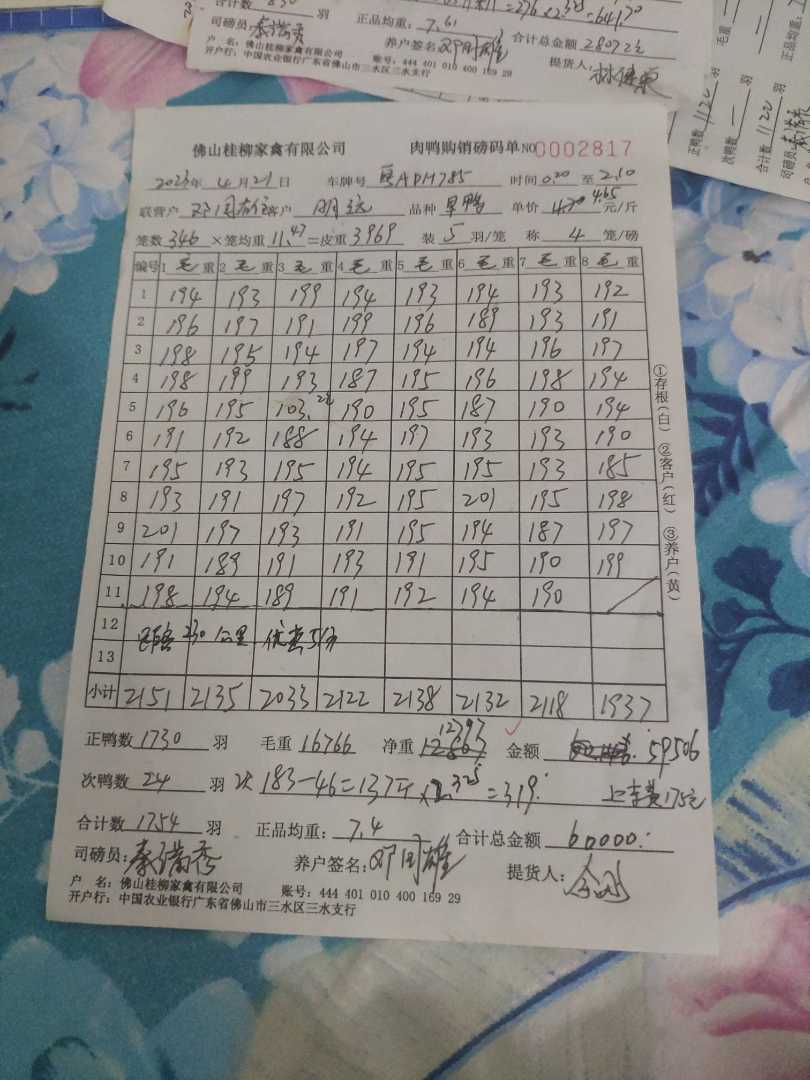 合计数 830 羽 正品均重: 7.61 合计总金额 28072元
司磅员: 养户签名: 提货人:
户 名: 佛山桂柳家禽有限公司 账号: 444 401 010 400 169 29
开户行: 中国农业银行广东省佛山市三水区三水支行
正鸭数 1122 羽 毛重
次鸭数 一 羽
合计数 1122 羽 正品均重
司磅员:
佛山桂柳家禽有限公司 肉鸭购销磅码单 NO 0002817
2023年 4月21日 车牌号 粤ADH785 时间 0.20 至 2.10
联营户 客户 明远 品种 旱鸭 单价 4.70 4.65 元/斤
笼数 346 ×笼均重 11.47 =皮重 3969 装 5 羽/笼 称 4 笼/磅
编号 1 毛 重 2 毛 重 3 毛 重 4 毛 重 5 毛 重 6 毛 重 7 毛 重 8 毛 重
1 194 193 199 194 193 194 193 192
2 196 197 191 199 196 189 193 191
3 198 195 194 197 194 194 196 197
4 198 199 193 187 195 196 198 194
5 196 195 103.2笼 190 195 187 190 194
6 191 192 188 194 197 193 193 190
7 195 193 195 194 195 195 193 185
8 193 191 197 192 195 201 195 198
9 201 197 193 191 195 194 187 197
10 191 189 191 193 191 195 190 199
11 198 194 189 191 192 194 190
12 距离 230公里 优惠5分
13
小计 2151 2135 2033 2122 2138 2132 2118 1937
正鸭数 1730 羽 毛重 16766 净重 12797 金额 59506
次鸭数 24 羽 次 183-46=137斤×2.325=319. 上车费175元
合计数 1754 羽 正品均重: 7.4 合计总金额 60000.
司磅员: 养户签名: 提货人:
户 名: 佛山桂柳家禽有限公司 账号: 444 401 010 400 169 29
开户行: 中国农业银行广东省佛山市三水区三水支行
①存根(白) ②客户(红) ③养户(黄)